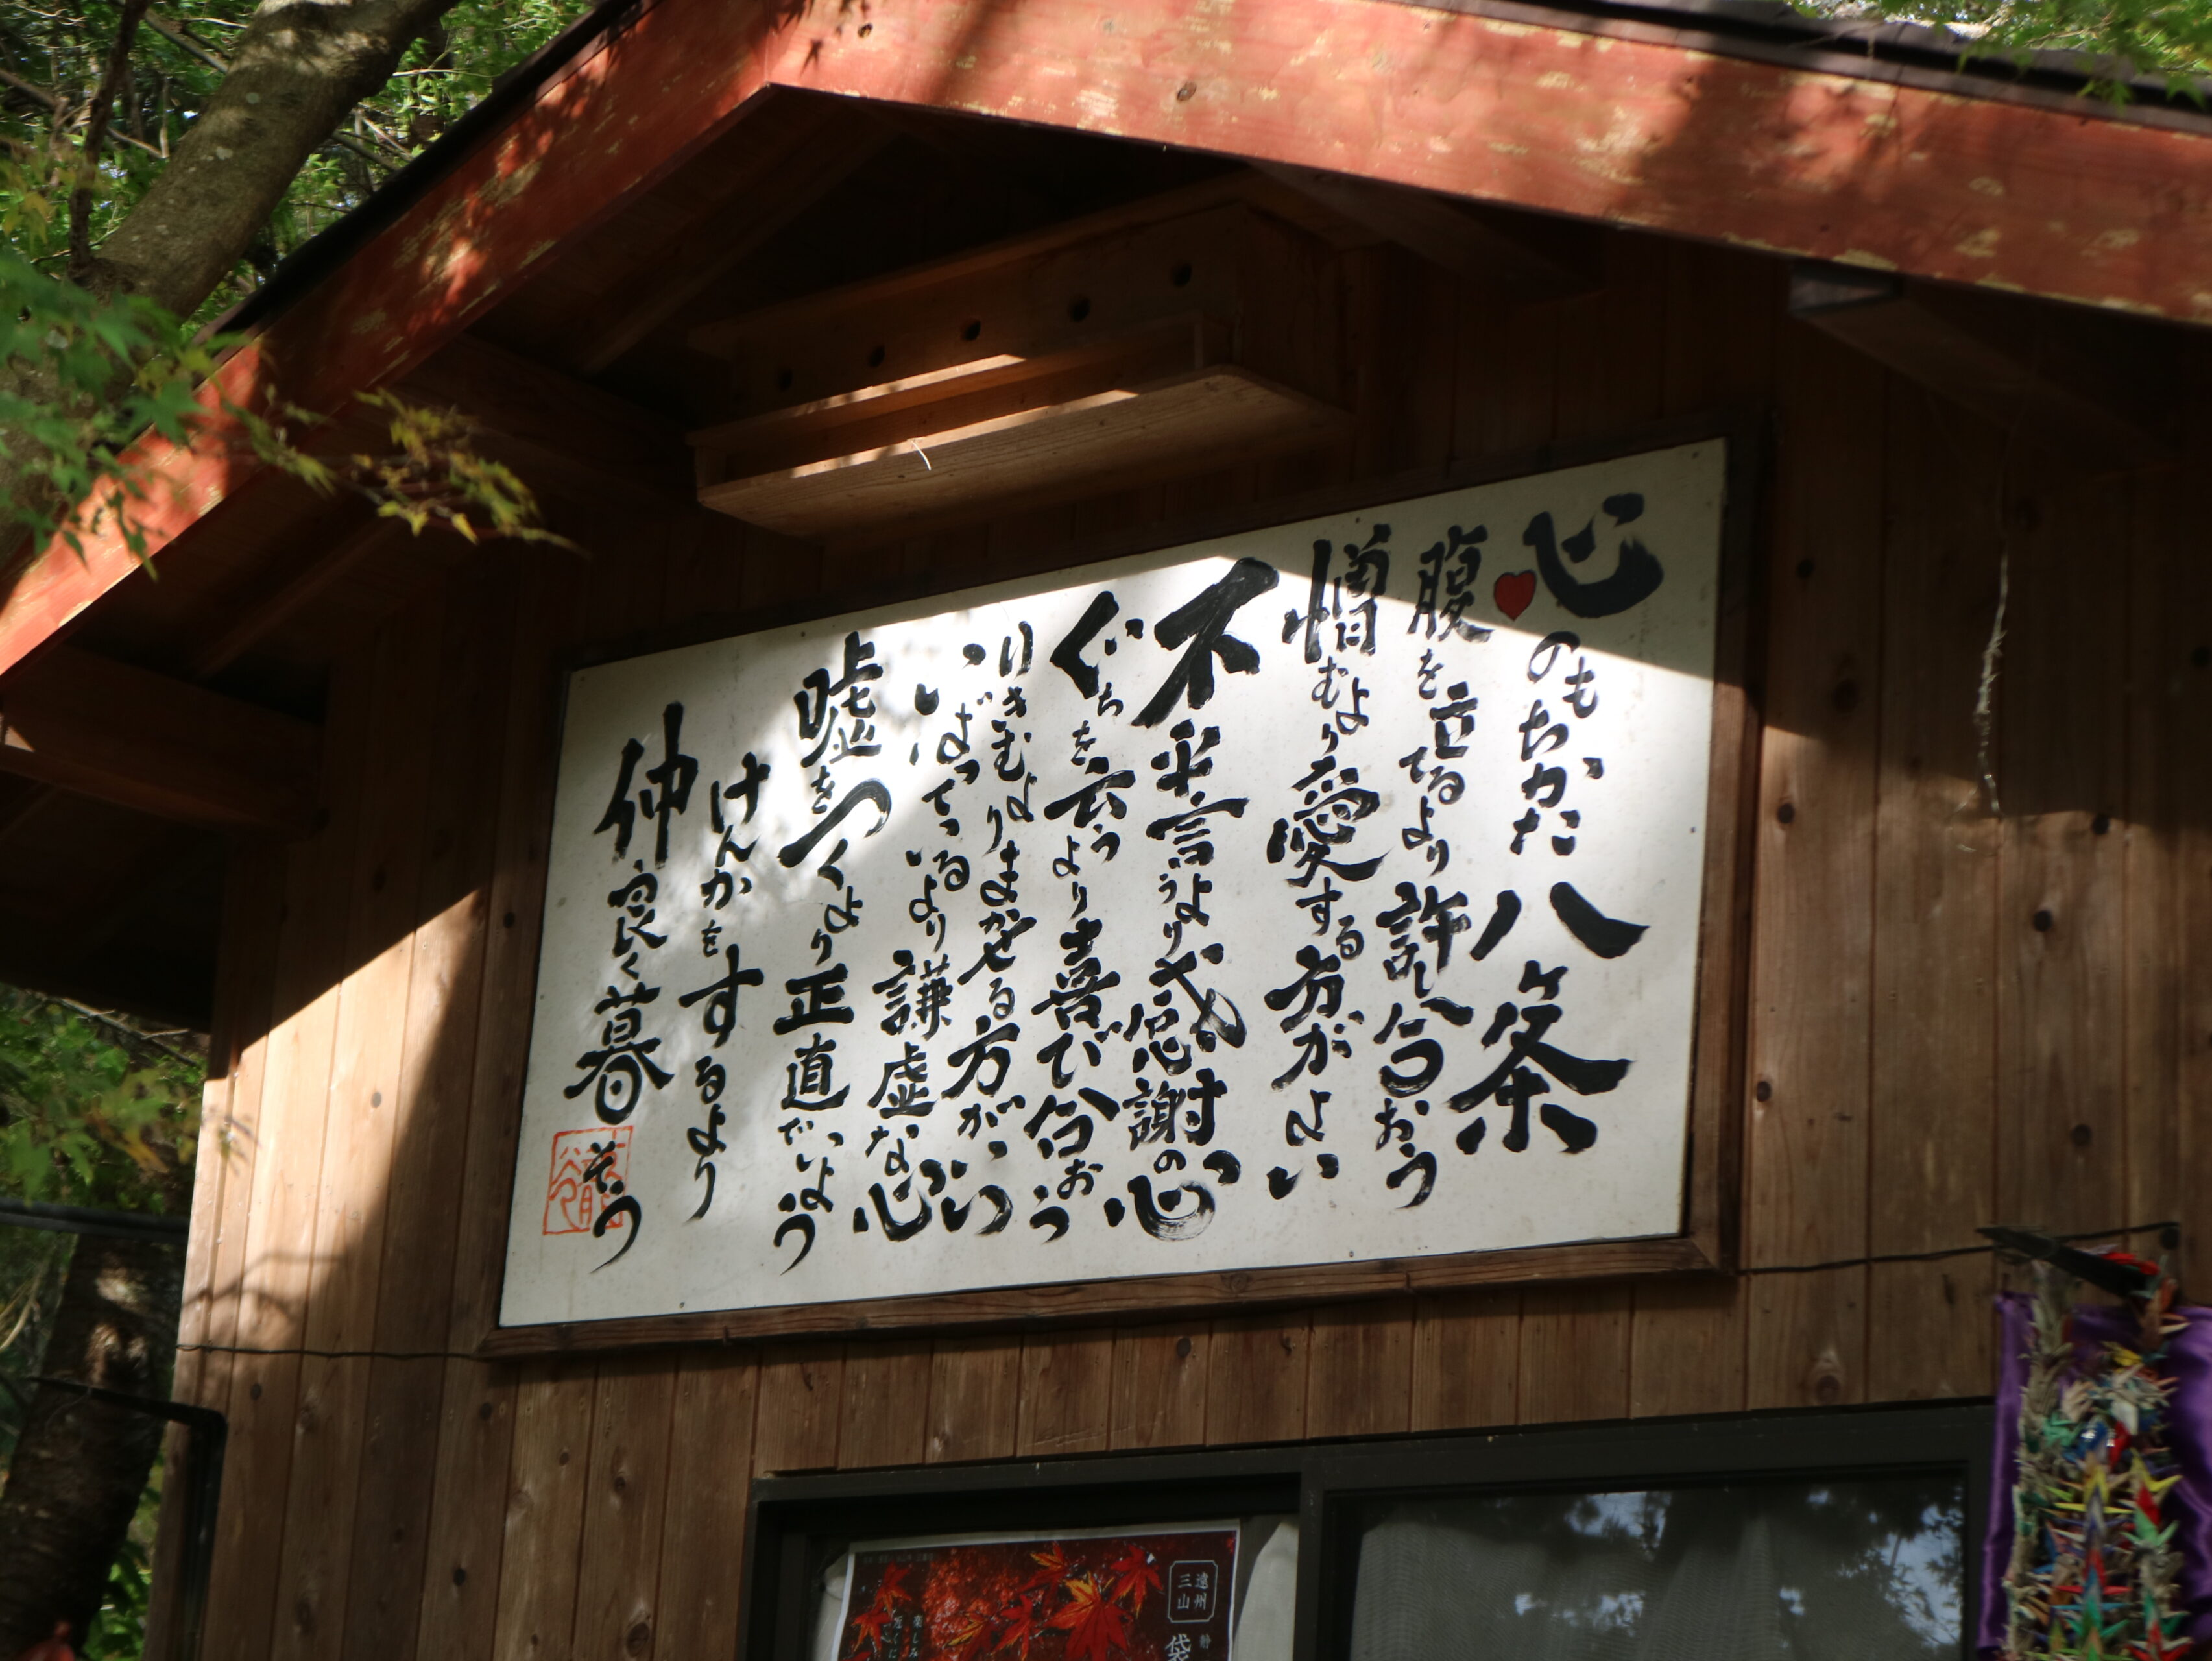 心のもちかた八ヶ条
腹を立てるより許し合おう
憎むより愛する方がよい
不平言うより感謝の心
ぐちを云うより喜び合おう
りきむよりまかせる方がいい
いばっているより謙虚な心
嘘をつくより正直でいよう
けんかをするより
仲良く暮そう
遠州
三山
静
袋
楽しみ